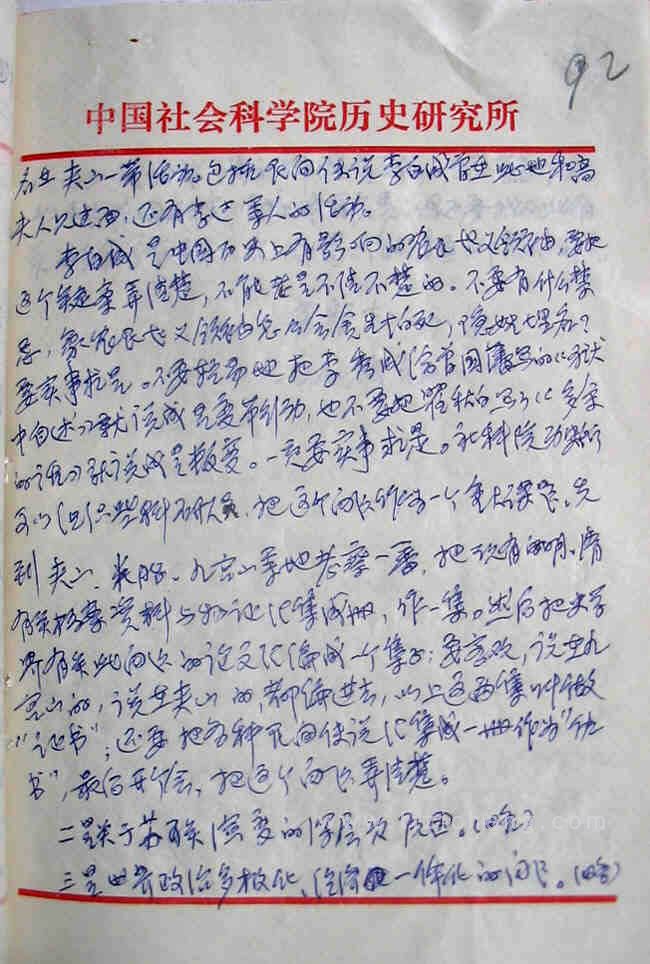 92
中国社会科学院历史研究所
在夹山一带活动。包括民间传说李自成曾在此地和高
夫人见过面,还有李过等人的活动。
李自成是中国历史上有影响的农民起义领袖,要把
这个疑案弄清楚,不能老是不清不楚的。不要有什么禁
忌,农民起义领袖怎么会
要实事求是。不要轻易地把李秀成给曾国藩写的《狱
中自述》就说成是要带引动,也不要把瞿秋白写的《多余
的话》就说成是叛变。一定要实事求是。社科院历史所
可以组织些科研人员,把这个问题作为一个重大课题,先
到夹山、米脂、九宫山等地考察一番,把现有的明、清
有关档案资料与物证汇集成册,作一集。然后把史学
界有关此问题的论文汇编成一个集子:要客观,说在九
宫山的,说在夹山的,都编进去,以上这两集叫做
“证书”;还要把各种民间传说汇集成一册作为“伪
书”,最后开个会,把这个问题弄清楚。
二是关于苏联演变的深层次原因。(略)
三是世界政治多极化、经济一体化的问题。(略)